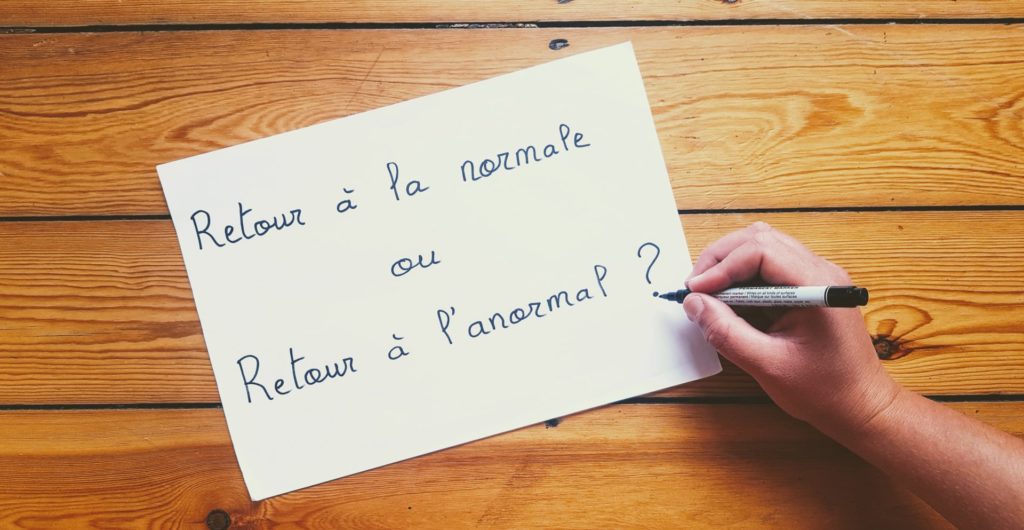 Retour à la normale
ou
Retour à l'anormal ?